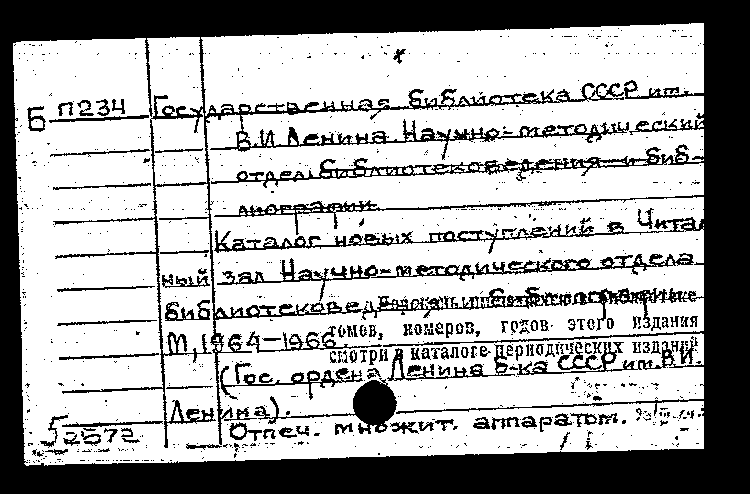 Б П234 Государственная библиотека СССР им.
В.И Ленина. Научно-методический
отдел библиотековедения и биб-
лиографии.
Каталог новых поступлений в Читаль
ный зал Научно-методического отдела
библиотековедения и библиографии
томов, номеров, годов этого издания
М, 1964-1966
смотри в каталоге периодических изданий
(Гос. ордена Ленина б-ка СССР им. В.И.
Ленина).
52572 Отпеч. множит. аппаратом.